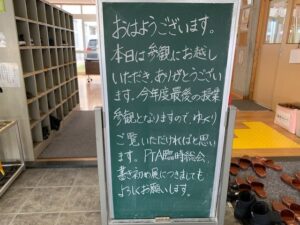 おはようございます。
本日は参観にお越し
いただき、ありがとうござい
ます。今年度最後の授業
参観となりますので、ゆっくり
ご覧いただければと思い
ます。PTA臨時総会、
書き初め展につきましても
よろしくお願いします。